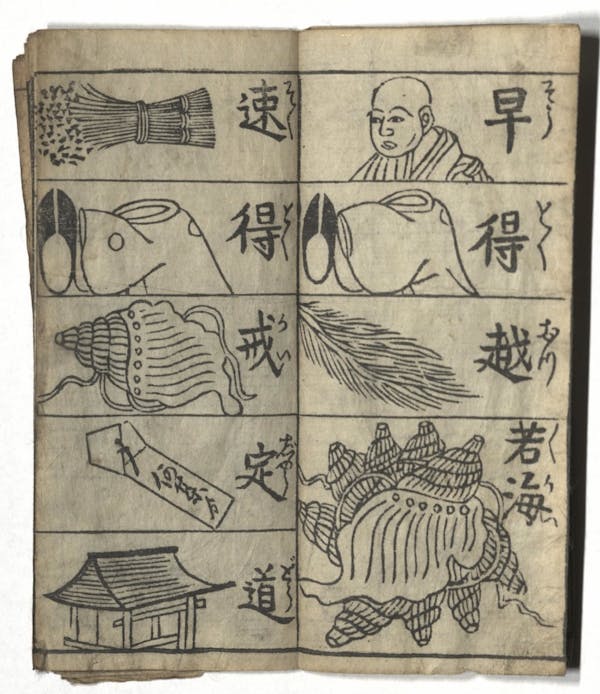 早 そう
得 とく
越 おつ
苦海 くかい
速 そく
得 とく
戒 かい
定
道 どう